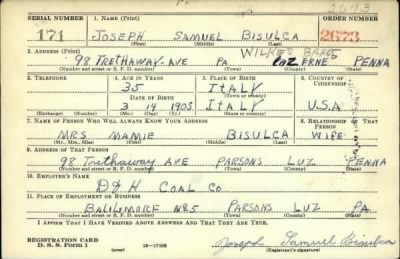 2673
SERIAL NUMBER 1. NAME (Print) ORDER NUMBER
171 JOSEPH SAMUEL BISULCA 2673
(First) (Middle) (Last)
2. ADDRESS (Print) WILKES BARRE
98 TRETHAWAY-AVE PA LUZERNE PENNA
(Number and street or R. F. D. number) (Town) (County) (State)
3. TELEPHONE 4. AGE IN YEARS 5. PLACE OF BIRTH 6. COUNTRY OF CITIZENSHIP
35 ITALY
DATE OF BIRTH (Town or county)
3 14 1905 ITALY U.S.A
(Exchange) (No.) (Mo.) (Day) (Yr.) (State or country)
7. NAME OF PERSON WHO WILL ALWAYS KNOW YOUR ADDRESS 8. RELATIONSHIP OF THAT PERSON
MRS MAMIE BISULCA WIFE
(Mr., Mrs., Miss) (First) (Middle) (Last)
9. ADDRESS OF THAT PERSON
98 Trethaway AVE PARSONS LUZ PENNA
(Number and street or R. F. D. number) (Town) (County) (State)
10. EMPLOYER'S NAME
D & H COAL CO
11. PLACE OF EMPLOYMENT OR BUSINESS
BALILMORE No 5 PARSONS LUZ PA.
(Number and street or R. F. D. number) (Town) (County) (State)
I AFFIRM THAT I HAVE VERIFIED ABOVE ANSWERS AND THAT THEY ARE TRUE.
REGISTRATION CARD
D. S. S. Form 1 (over) 16—17105 Joseph Samuel Bisulca
(Registrant's signature)